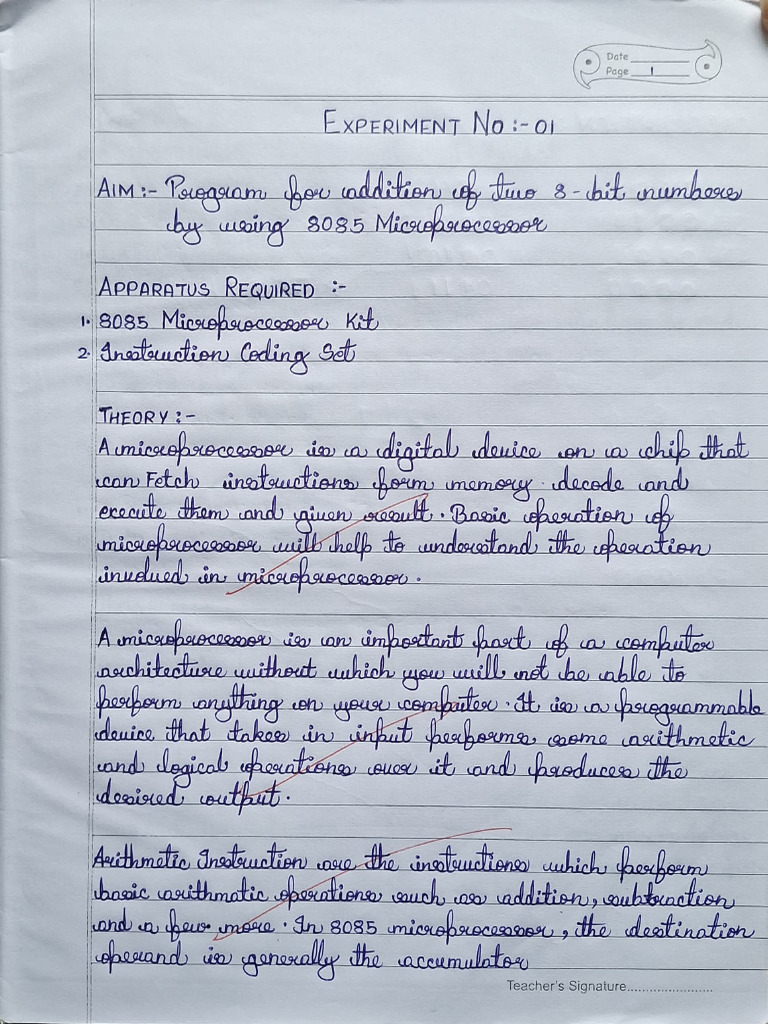 Date
Page 1
EXPERIMENT NO :- 01
AIM :- Program for addition of two 8-bit numbers
by using 8085 Microprocessor
APPARATUS REQUIRED :-
1. 8085 Microprocessor Kit
2. Instruction Coding Set
THEORY :-
A microprocessor is a digital device on a chip that
can Fetch instructions form memory. decode and
execute them and given result. Basic operation of
microprocessor will help to understand the operation
involued in microprocessor.
A microprocessor is an important part of a computer
architecture without which you will not be able to
perform anything on your computer. It is a programmable
device that takes in input performs some arithmetic
and logical operations over it and produces the
desired output.
Arithmetic Instruction are the instructions which perform
basic arithmatic operations such as addition, subtraction
and a few more. In 8085 microprocessor, the destination
operand is generally the accumulator
Teacher's Signature........................